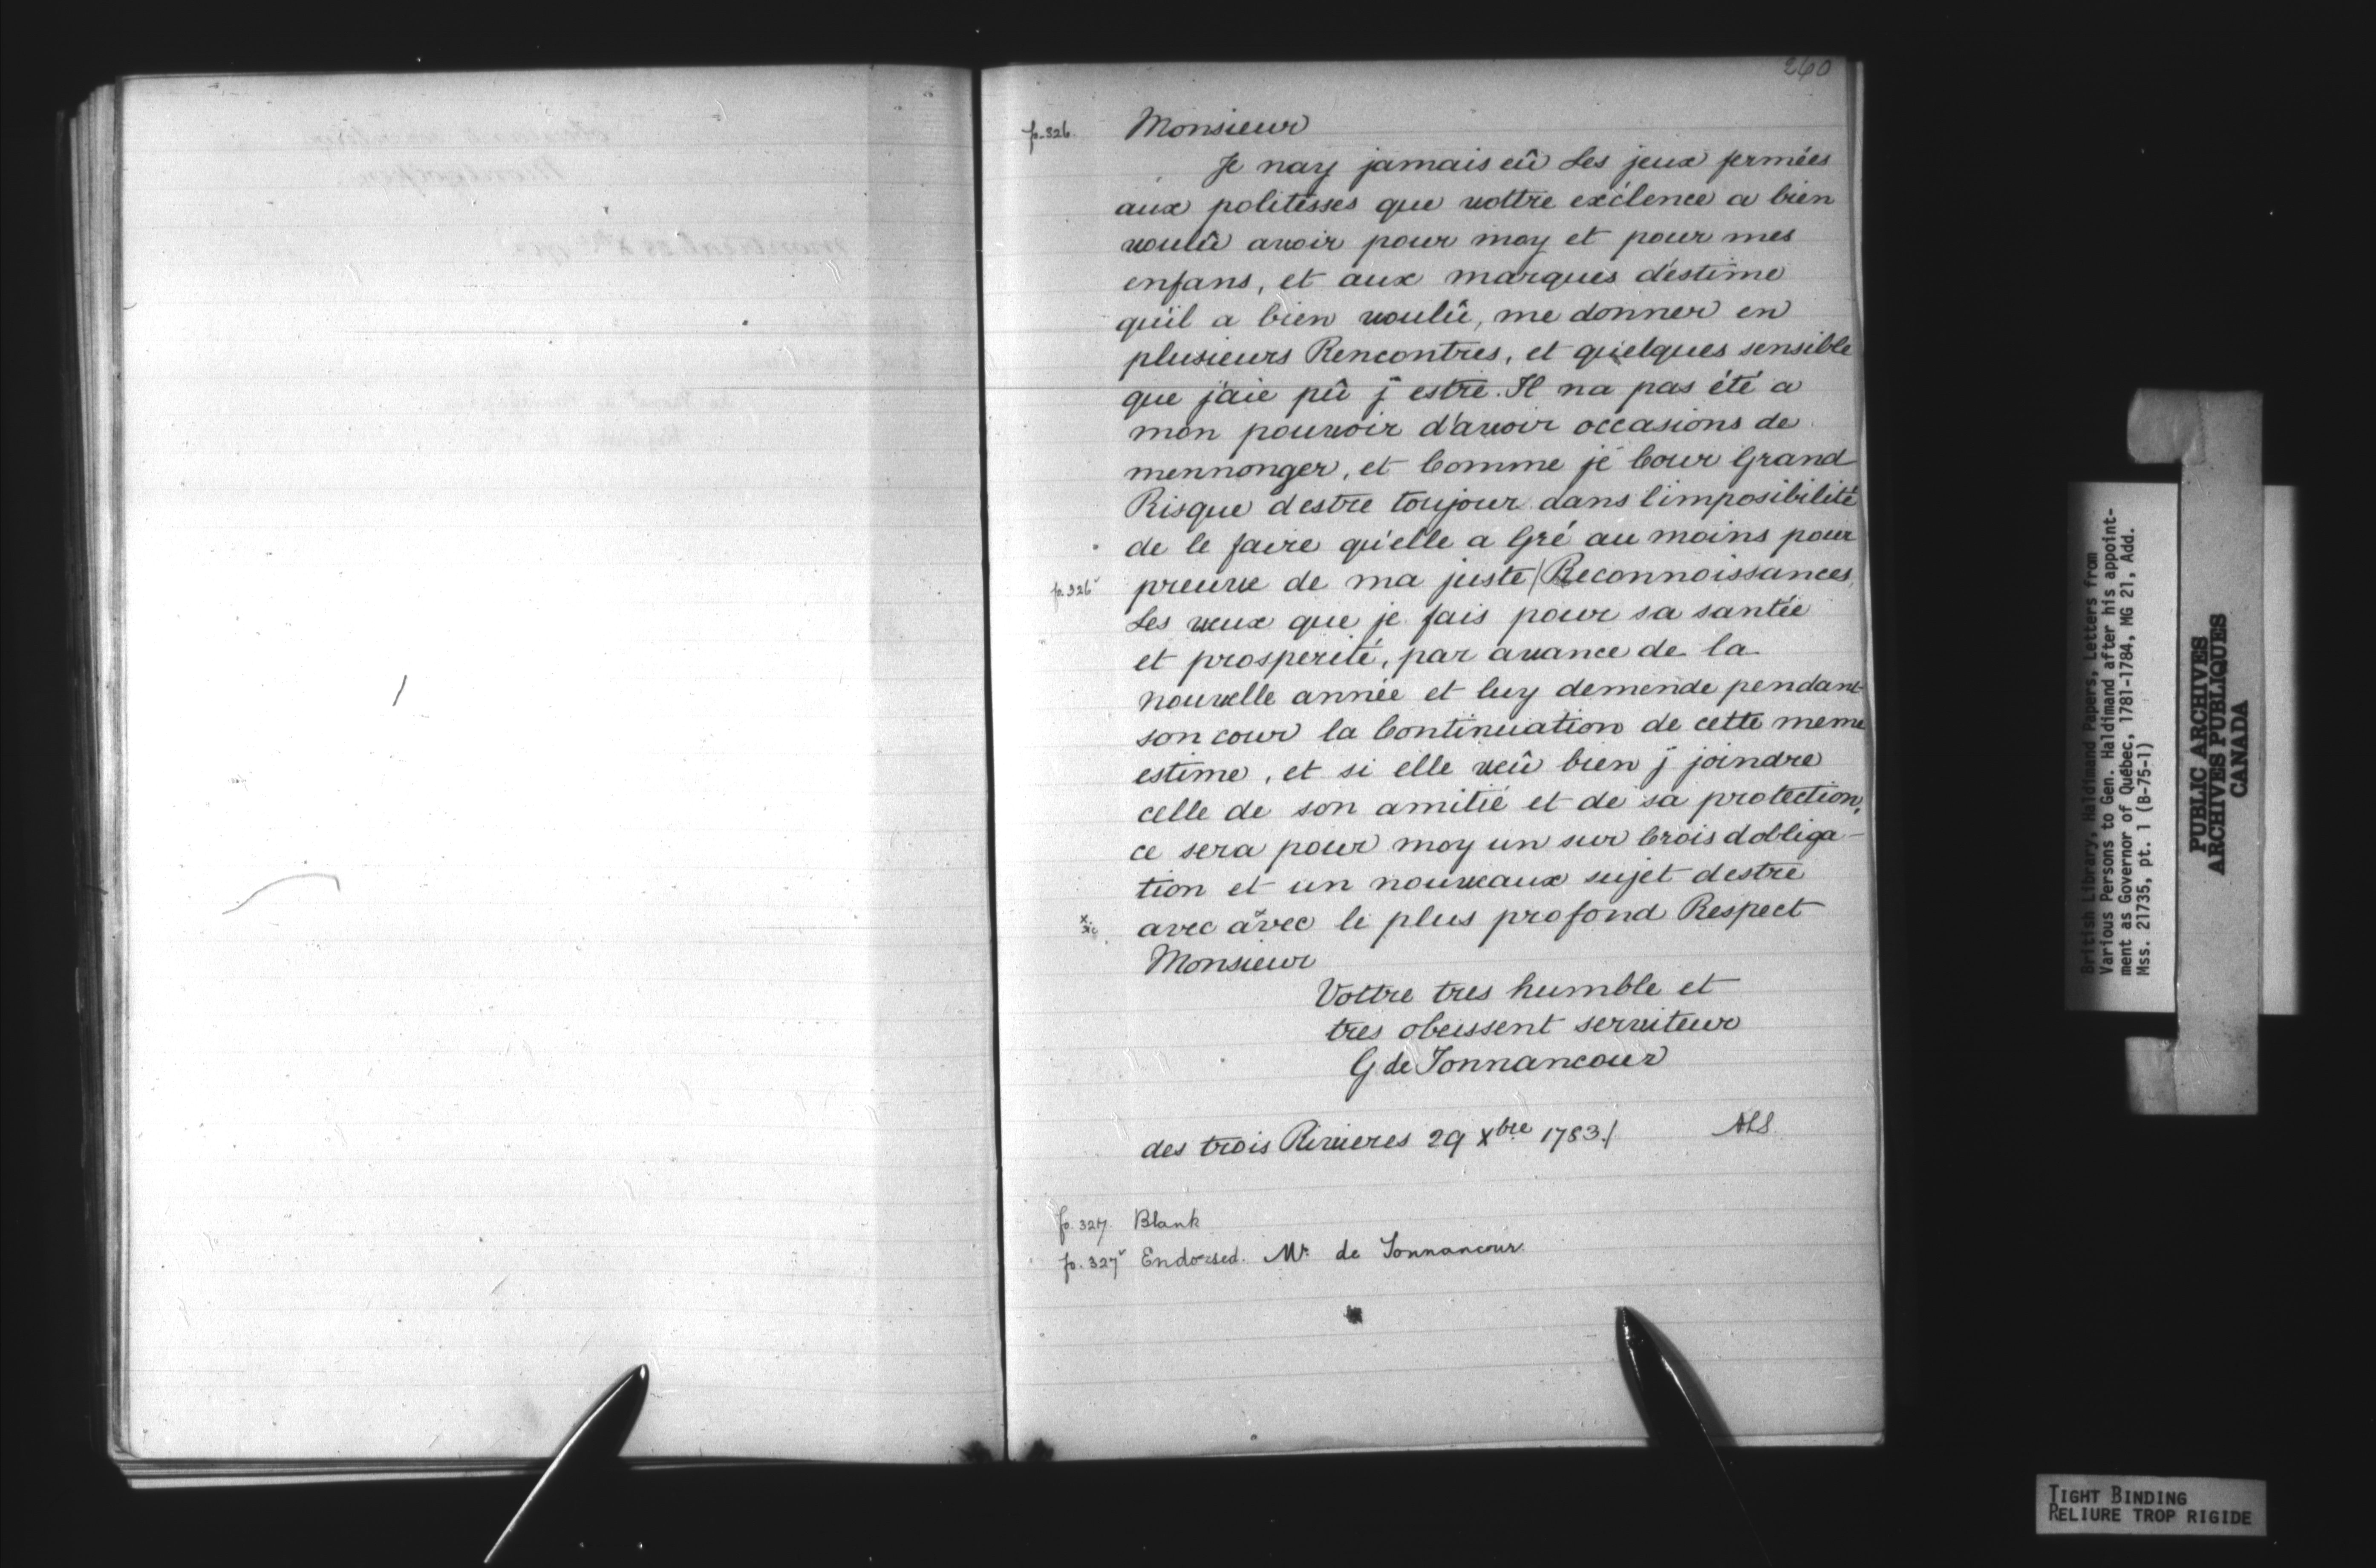 260
fo. 326. Monsieur
Je nay jamais eû Les jeux fermées
aux politésses que vottre exélence a bien
voulû avoir pour moy et pour mes
enfans, et aux marques déstime
quil a bien voulû, me donner en
plusieurs Rencontres, et quelques sensible
que j'aie pû ÿ estre. Il na pas été a
mon pouvoir d'avoir occasions de
mennonger, et Comme je Cour Grand
Risque destre toujour dans l'imposibilité
de le faire qu'elle a Gré au moins pour
fo. 326v preuve de ma juste / Reconnoissances,
Les veux que je fais pour sa santée
et prosperité, par avance de la
nouvelle année et luy demende pendant
son cour la Continuation de cette meme
estime, et si elle veû bien ÿ joindre
celle de son amitié et de sa protection,
ce sera pour moy un sur Crois dobliga-
tion et un nouveaux sujet destre
x sic avec avec le plus profond Respect
Monsieur
Vottre tres humble et
tres obeissent serviteur
G de Tonnancour
des trois Rivieres 29 Xbre 1783./ ALS
fo. 327. Blank
fo. 327v Endorsed. Mr. de Tonnancour.
British Library, Haldimand Papers, Letters from
Various Persons to Gen. Haldimand after his appoint-
ment as Governor of Québec, 1781-1784, MG 21, Add.
Mss. 21735, pt. 1 (B-75-1)
PUBLIC ARCHIVES
ARCHIVES PUBLIQUES
CANADA
TIGHT BINDING
RELIURE TROP RIGIDE